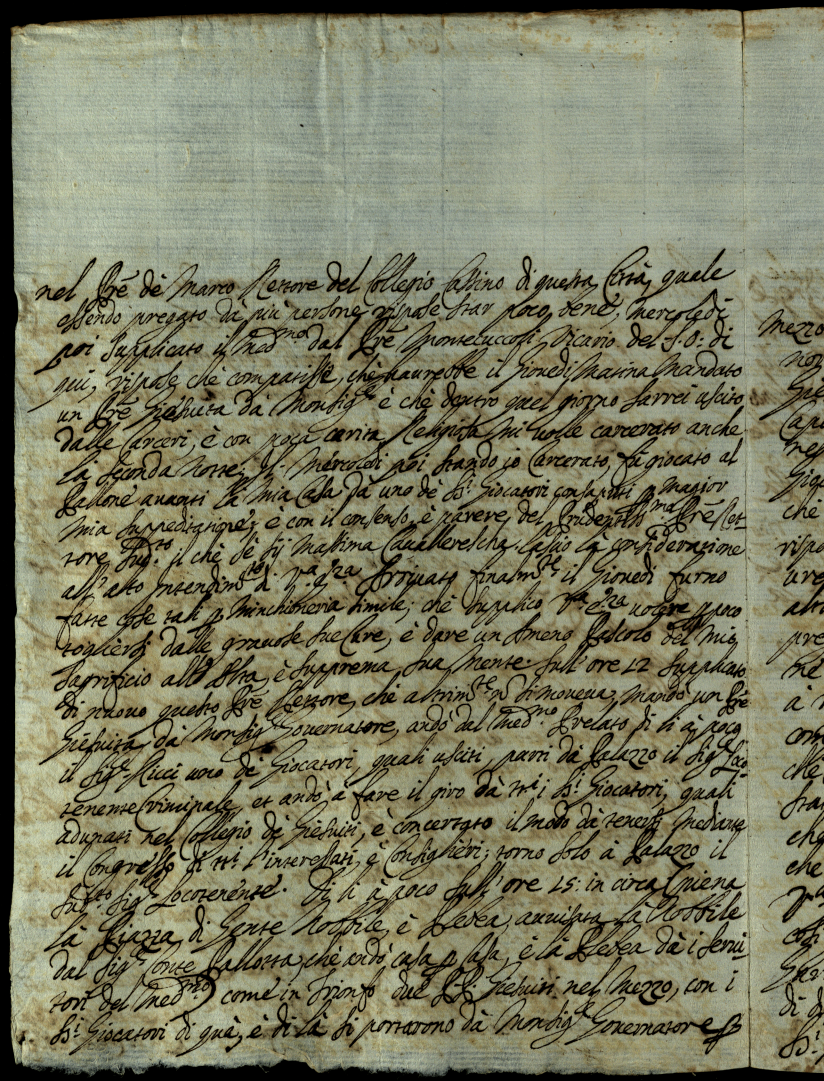 nel Prẽ dè Marco Rettore del Collegio Cassino di questa Città, quale
essendo pregato dà più persone, rispose star poco bene, mercoledì
poi supplicato il med.mo dal Prẽ Montecuccoli Vicario del S. O: di
qui, rispose, chè compatisse, chè haurebbe il Giouedì Matina mandato
un Prẽ Giesuita dà Monsig.re è chè dentro quel giorno sarrei uscito
dalle Carceri, è con poca carità Religiosa mi uolle carcerato anche
la seconda notte; Il Mercoledì poi stando io Carcerato, fù giocato al
Pallone auanti la mia Casa dà uno dè SS.i Giocatori consaputi p maggior
mia suppeditatione; è con il consenso, è parere del Prudentiss.ma Prẽ Ret=
tore sud.to il chè sè sij massima Cauallerescha lascio là consideratione
all'alto Intendim.to di V.ra Arriuato finalm.te il Giouedì furno
fatte cose tali p minchioneria simile, chè supplico uolere p poco
togliersi dalle grauose sue Cure, è dare un ameno Pascolo del mio
Sagrificio all' Alta, è Supprema sua mente. Sull'ore 12 supplicato
di nuouo questo Prẽ Rettore, chè altrim.te nõ si moueua, mandò un Prẽ
Giesuita dà Monsig.r Gouernatore, andò dal med.mo Prelato di li à poco
il Sig.r Ricci uno dè Giocatori, quali usciti, partì dà Palazzo il Sig.r Loco
tenente Criminale, et andò à fare il giro dà tt.i i SS.i Giocatori, quali
adunati nel Collegio dè Giesuiti, è concertato il modo dà tenersi mediante
il Congresso di tt.i l'interessati, è Consiglieri; torno solo à Palazzo il
sud.to Sig.r Locotenente. Di li à poco sull'ore 15: in circa piena
là Piazza di Gente Nobbile, è Plebea, auuisata là Nobbile
dal Sig.r Conte Pallotta, chè andò casa p Casa, è là Plebea dà i serui=
tori del med.mo come in Trionfo due PP. Giesuiti nel mezzo, con i
SS.i Giocatori di quà, è di là si portorono dà Monsig.r Gouernatore